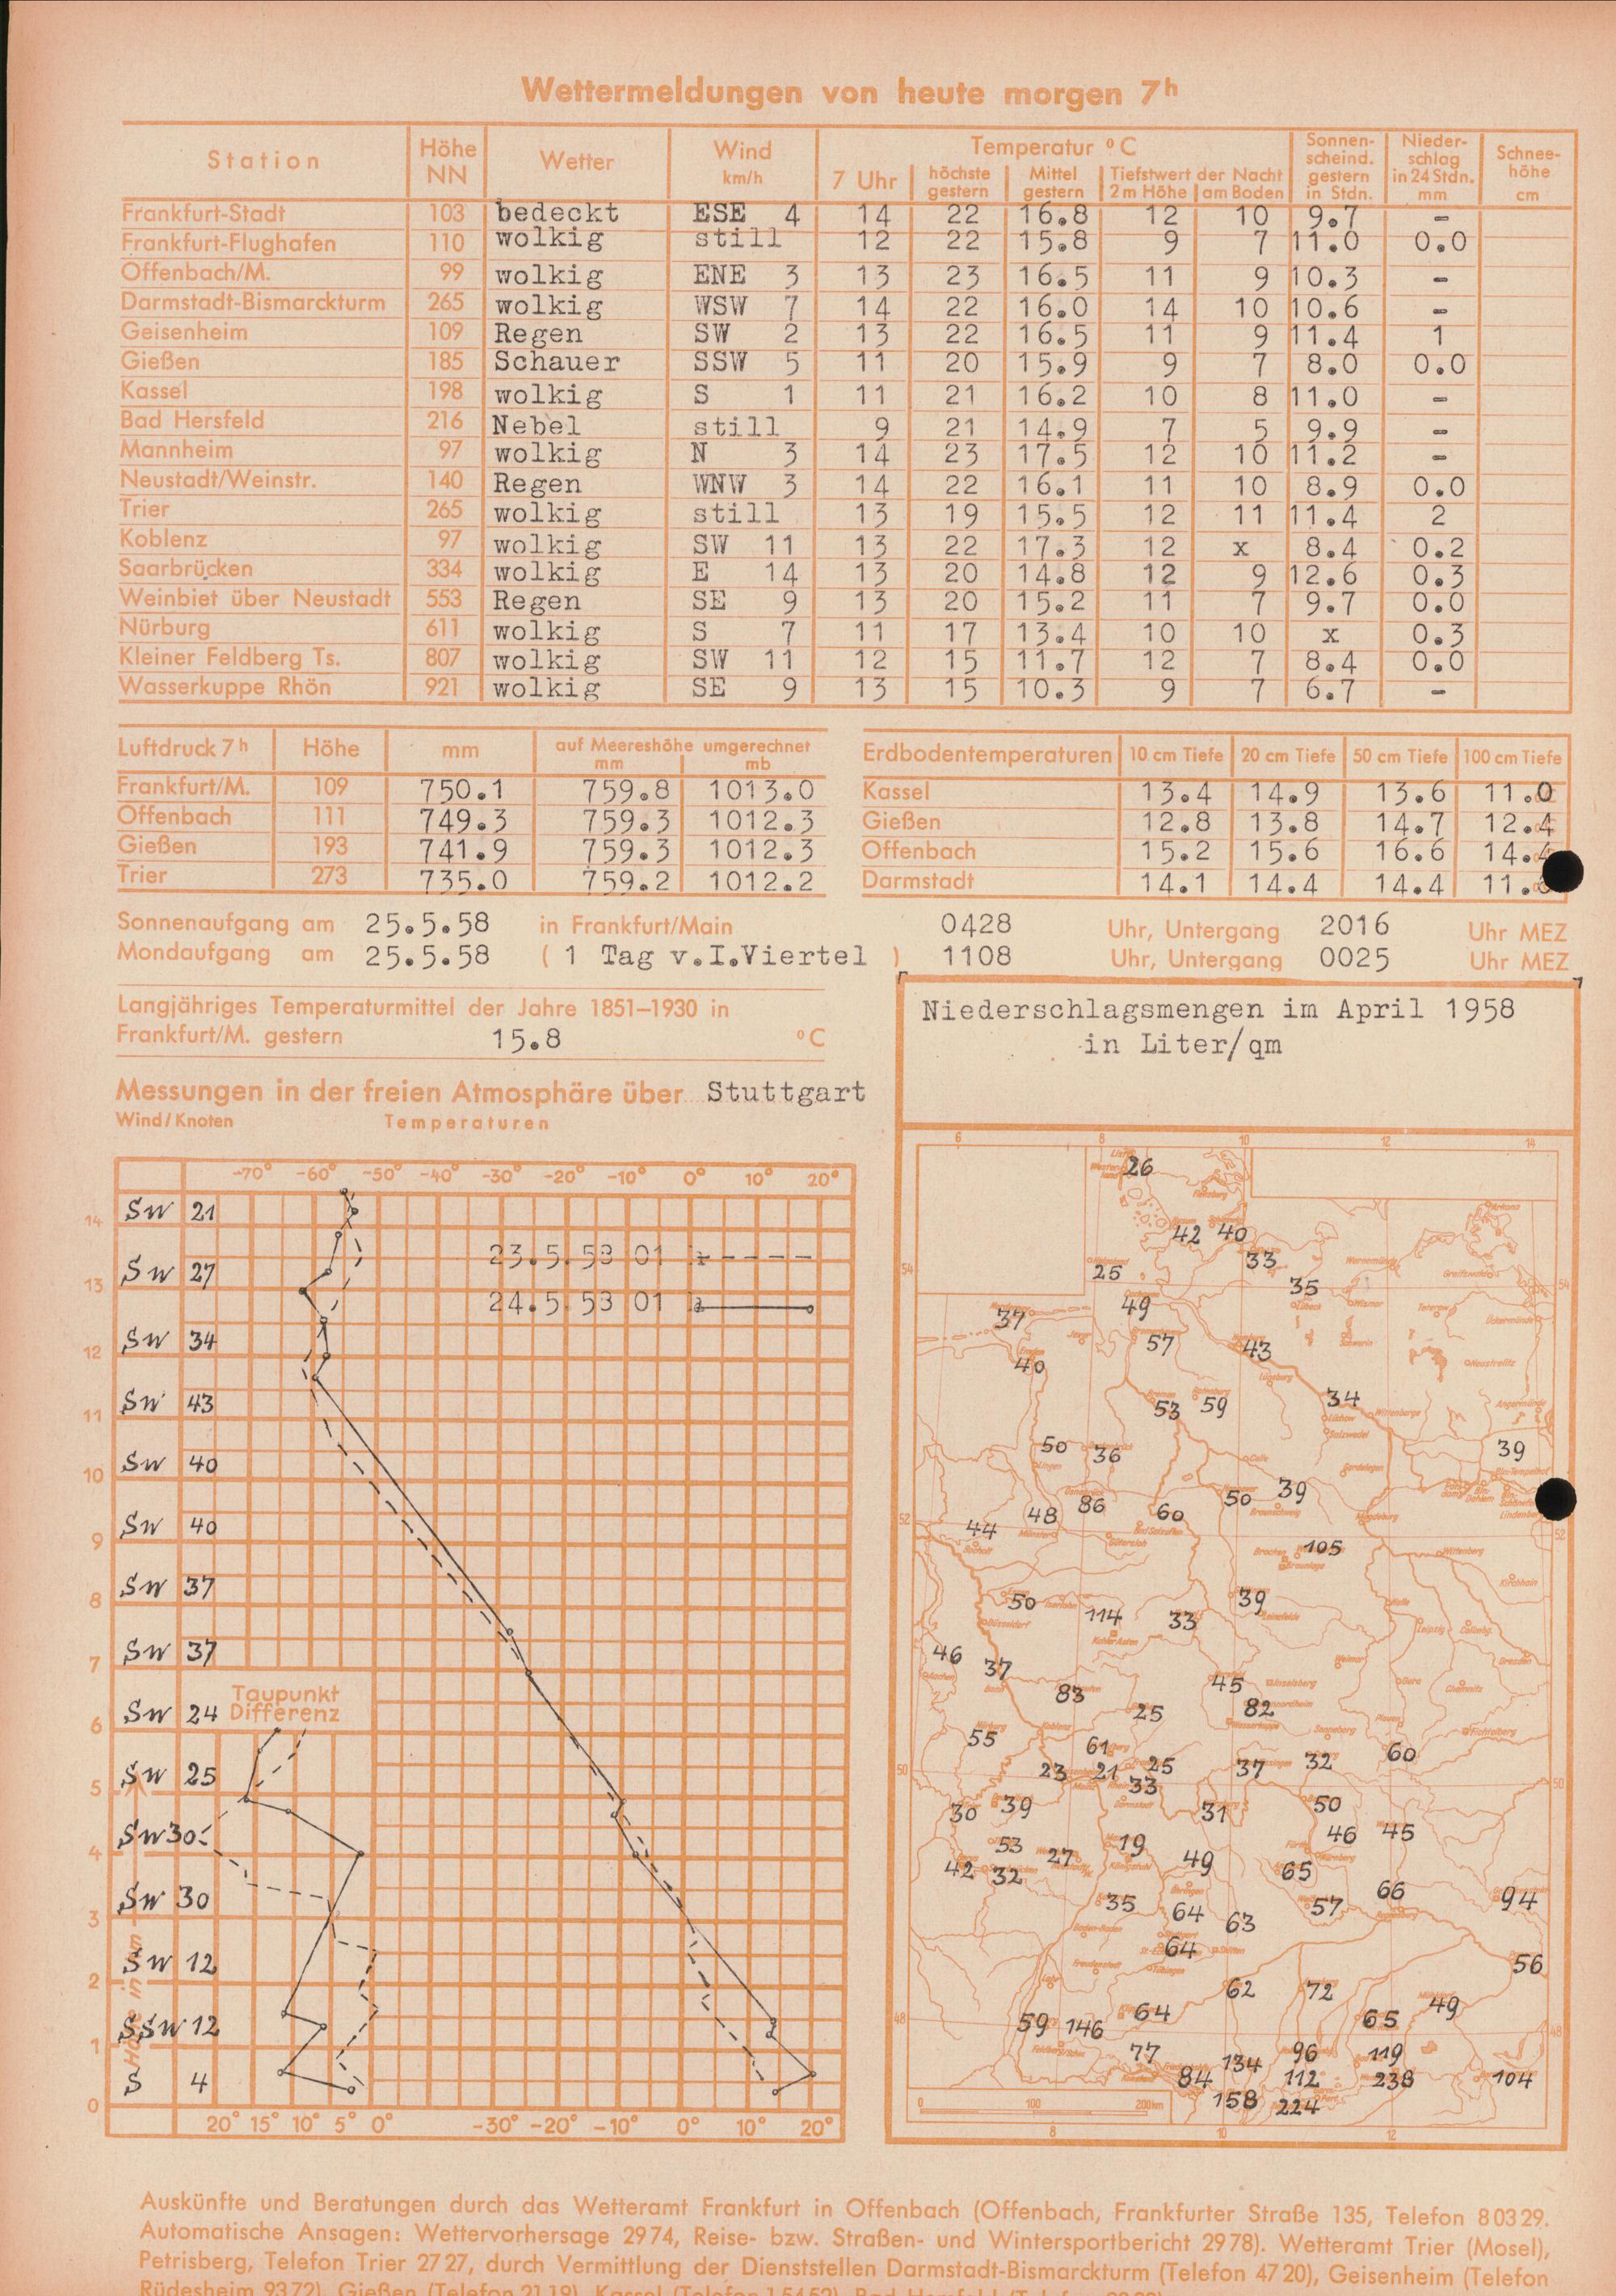 Wettermeldungen von heute morgen 7h
Station Höhe NN Wetter Wind km/h Temperatur °C Sonnenscheind. gestern in Stdn. Niederschlag in 24 Stdn. mm Schneehöhe cm
7 Uhr höchste gestern Mittel gestern Tiefstwert der Nacht 2 m Höhe am Boden
Frankfurt-Stadt 103 bedeckt ESE 4 14 22 16.8 12 10 9.7 -
Frankfurt-Flughafen 110 wolkig still 12 22 15.8 9 7 11.0 0.0
Offenbach/M. 99 wolkig ENE 3 13 23 16.5 11 9 10.3 -
Darmstadt-Bismarckturm 265 wolkig WSW 7 14 22 16.0 14 10 10.6 -
Geisenheim 109 Regen SW 2 13 22 16.5 11 9 11.4 1
Gießen 185 Schauer SSW 5 11 20 15.9 9 7 8.0 0.0
Kassel 198 wolkig S 1 11 21 16.2 10 8 11.0 -
Bad Hersfeld 216 Nebel still 9 21 14.9 7 5 9.9 -
Mannheim 97 wolkig N 3 14 23 17.5 12 10 11.2 -
Neustadt/Weinstr. 140 Regen WNW 3 14 22 16.1 11 10 8.9 0.0
Trier 265 wolkig still 13 19 15.5 12 11 11.4 2
Koblenz 97 wolkig SW 11 13 22 17.3 12 x 8.4 0.2
Saarbrücken 334 wolkig E 14 13 20 14.8 12 9 12.6 0.3
Weinbiet über Neustadt 553 Regen SE 9 13 20 15.2 11 7 9.7 0.0
Nürburg 611 wolkig S 7 11 17 13.4 10 10 x 0.3
Kleiner Feldberg Ts. 807 wolkig SW 11 12 15 11.7 12 7 8.4 0.0
Wasserkuppe Rhön 921 wolkig SE 9 13 15 10.3 9 7 6.7 -
Luftdruck 7h Höhe mm auf Meereshöhe umgerechnet mm mb
Frankfurt/M. 109 750.1 759.8 1013.0
Offenbach 111 749.3 759.3 1012.3
Gießen 193 741.9 759.3 1012.3
Trier 273 735.0 759.2 1012.2
Erdbodentemperaturen 10 cm Tiefe 20 cm Tiefe 50 cm Tiefe 100 cm Tiefe
Kassel 13.4 14.9 13.6 11.0
Gießen 12.8 13.8 14.7 12.4
Offenbach 15.2 15.6 16.6 14.4
Darmstadt 14.1 14.4 14.4
Sonnenaufgang am 25.5.58 in Frankfurt/Main 0428 Uhr, Untergang 2016 Uhr MEZ
Mondaufgang am 25.5.58 ( 1 Tag v.I.Viertel ) 1108 Uhr, Untergang 0025 Uhr MEZ
Langjähriges Temperaturmittel der Jahre 1851–1930 in
Frankfurt/M. gestern 15.8 °C
Messungen in der freien Atmosphäre über Stuttgart
Wind/Knoten Temperaturen
-70° -60° -50° -40° -30° -20° -10° 0° 10° 20°
14 SW 21
23.5.58 01 h
13 SW 27
24.5.58 01 h
12 SW 34
11 SW 43
10 SW 40
9 SW 40
8 SW 37
7 SW 37
Taupunkt
6 SW 24 Differenz
5 SW 25
4 SW 30
3 SW 30
2 SW 12
1 SSW 12
0 S 4
Höhe in km
20° 15° 10° 5° 0° -30° -20° -10° 0° 10° 20°
Niederschlagsmengen im April 1958
in Liter/qm
6 8 10 12 14
26
42 40
33
25
54 35 54
49
37
57
43
40
34
53 59
50 36 39
39
50
48 86 60
44
52 105 52
50 114 33 39
46 37
45
83 82
25
55 61 60
32
23 21 25 37
50 33 50
30 39 31 50
46 45
53 27 19
42 32 49 65
66 94
35 64 57
63
64
56
62 72
49
48 59 146 64 65 48
77 134 96 119
84 112 238 104
158 224
0 100 200 km
8 10 12
Auskünfte und Beratungen durch das Wetteramt Frankfurt in Offenbach (Offenbach, Frankfurter Straße 135, Telefon 8 03 29.
Automatische Ansagen: Wettervorhersage 29 74, Reise- bzw. Straßen- und Wintersportbericht 29 78). Wetteramt Trier (Mosel),
Petrisberg, Telefon Trier 27 27, durch Vermittlung der Dienststellen Darmstadt-Bismarckturm (Telefon 47 20), Geisenheim (Telefon
Rüdesheim 93 72), Gießen (Telefon 21 19), Kassel (Telefon